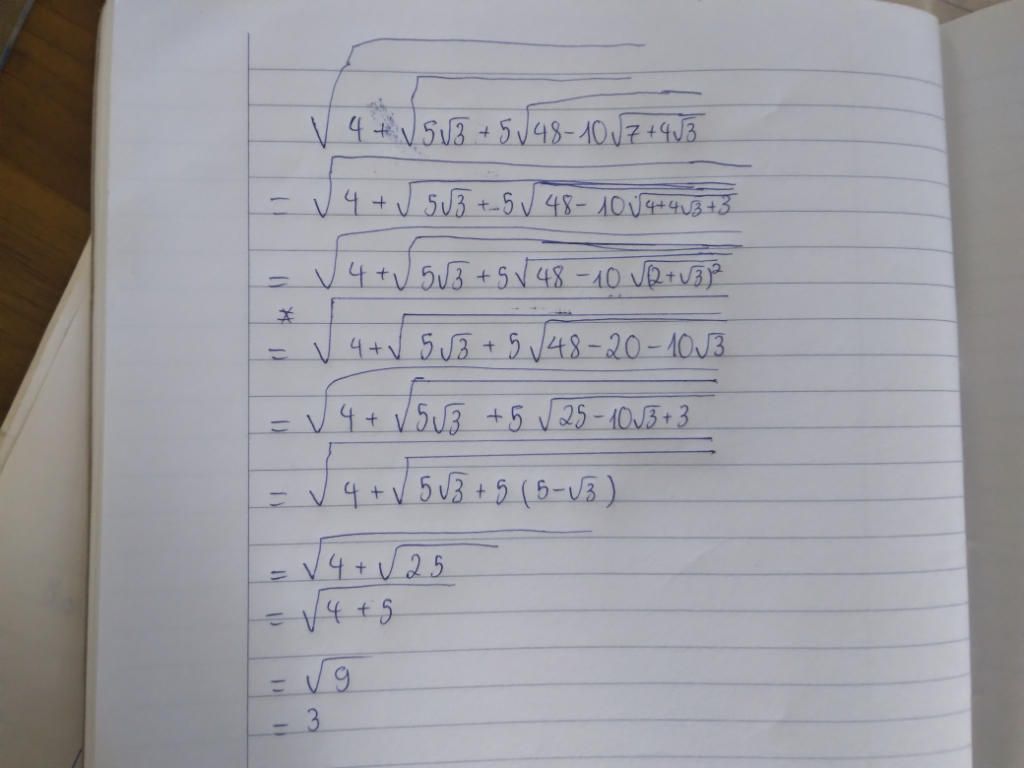 √(4 + √(5√3 + 5√(48 - 10√(7 + 4√3))))
= √(4 + √(5√3 + 5√(48 - 10√(4+4√3+3))))
= √(4 + √(5√3 + 5√(48 - 10√((2+√3)²))))
*
= √(4 + √(5√3 + 5√(48 - 20 - 10√3)))
= √(4 + √(5√3 + 5√(25 - 10√3 + 3)))
= √(4 + √(5√3 + 5(5-√3)))
= √(4 + √25)
= √(4 + 5)
= √9
= 3